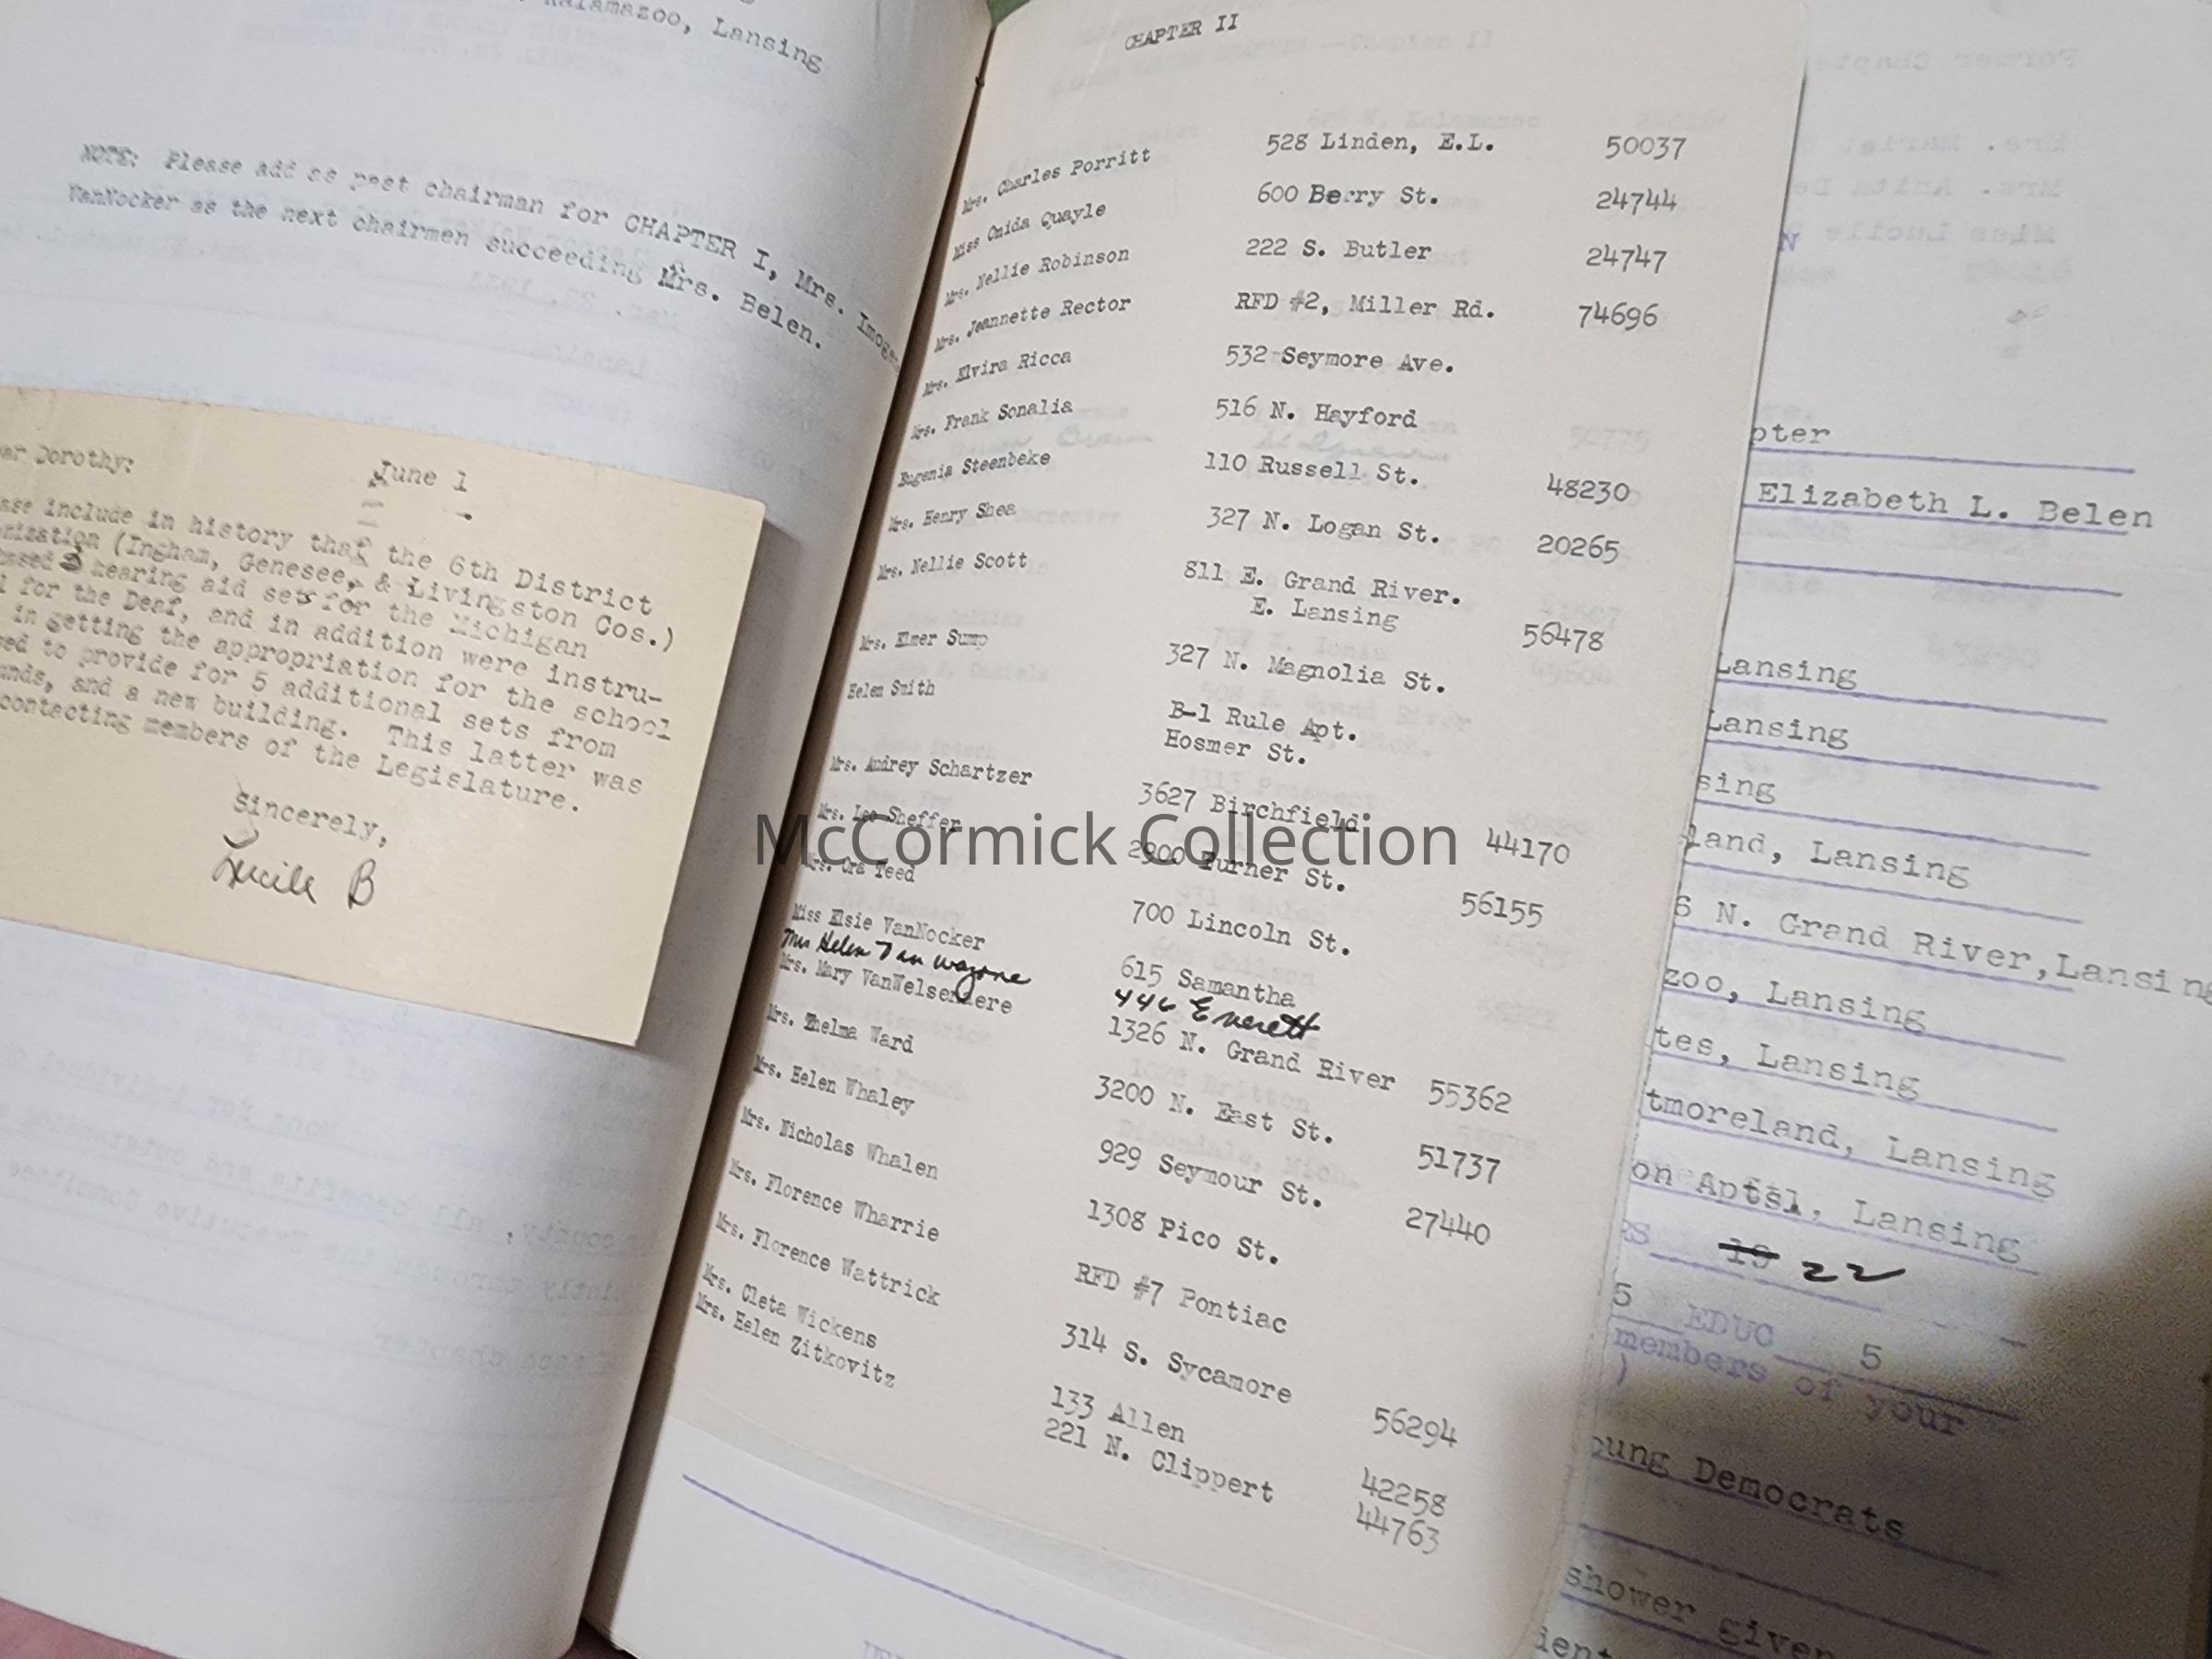 Kalamazoo, Lansing
NOTE: Please add as past chairman for CHAPTER I, Mrs. Imogen
VanNocker as the next chairmen succeeding Mrs. Belen.
Dorothy:
June 1
include in history that the 6th District
(Ingham, Genesee, & Livingston Cos.)
hearing aid sets for the Michigan
for the Deaf, and in addition were instru-
in getting the appropriation for the school
to provide for 5 additional sets from
and a new building. This latter was
contacting members of the Legislature.
Sincerely,
Lucile B
CHAPTER II
Mrs. Charles Porritt 528 Linden, E.L. 50037
Miss Onida Quayle 600 Berry St. 24744
Mrs. Nellie Robinson 222 S. Butler 24747
Mrs. Jeannette Rector RFD #2, Miller Rd. 74696
Mrs. Elvira Ricca 532 Seymore Ave.
Mrs. Frank Sonalia 516 N. Hayford
Eugenia Steenbeke 110 Russell St. 48230
Mrs. Henry Shea 327 N. Logan St. 20265
Mrs. Nellie Scott 811 E. Grand River.
E. Lansing 56478
Mrs. Elmer Sump 327 N. Magnolia St.
Helen Smith B-1 Rule Apt.
Hosmer St.
Mrs. Audrey Schartzer 3627 Birchfield 44170
Mrs. Leo Sheffer 2900 Turner St. 56155
Mrs. Ora Teed 700 Lincoln St.
Miss Elsie VanNocker 615 Samantha
Mrs Helen Van Wagone 446 Everett
Mrs. Mary VanWelsenaere 1326 N. Grand River 55362
Mrs. Thelma Ward 3200 N. East St. 51737
Mrs. Helen Whaley 929 Seymour St. 27440
Mrs. Nicholas Whalen 1308 Pico St.
Mrs. Florence Wharrie RFD #7 Pontiac
Mrs. Florence Wattrick 314 S. Sycamore 56294
Mrs. Cleta Wickens 133 Allen 42258
Mrs. Helen Zitkovitz 221 N. Clippert 44763
McCormick Collection
pter
Elizabeth L. Belen
Lansing
Lansing
sing
land, Lansing
6 N. Grand River, Lansing
zoo, Lansing
tes, Lansing
tmoreland, Lansing
on Aptsl, Lansing
RS 19 22
5 EDUC 5
members of your
oung Democrats
shower given